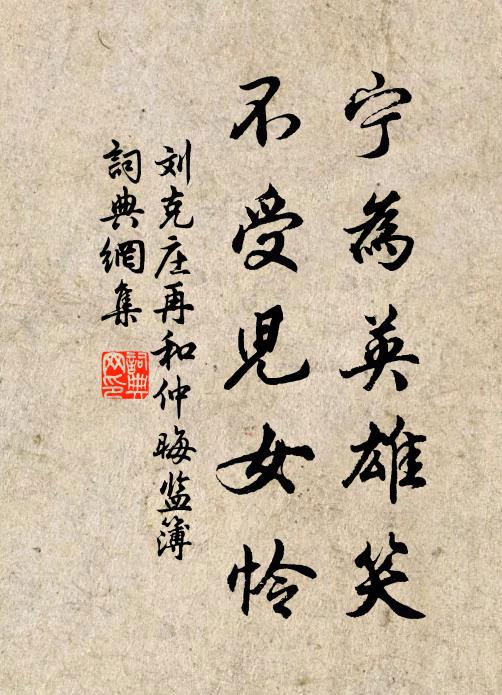 宁為英雄笑
不受児女怜
刘克庄再和仲晦监簿
詞典網集
詞典網印